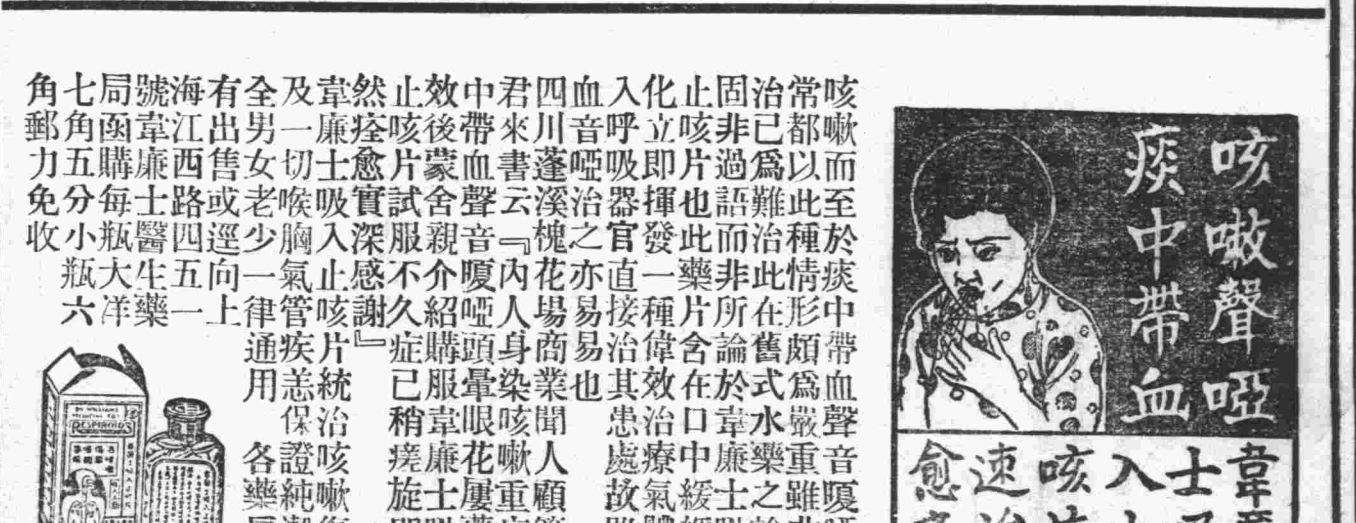 咳嗽聲啞
痰中帶血
韋
士
入
咳
速
愈
咳嗽而至於痰中帶血聲音嗄
常都以此種情形頗爲嚴重雖
治已爲難治此在舊式水藥之
固非過語而非所論於韋廉士
止咳片也此藥片含在口中緩
化立即揮發一種偉效治療氣
入呼吸器官直接治其患處故
血音啞治之亦易易也
四川蓬溪槐花場商業聞人顧
君來書云『內人身染咳嗽重
中帶血聲音嗄啞頭暈眼花屢
效後蒙舍親介紹購服韋廉士
止咳片試服不久症已稍瘥旋
然痊愈實深感謝』
韋廉士吸入止咳片統治咳嗽
及一切喉胸氣管疾恙保證純
全男女老少一律通用 各藥
有出售或逕向上
海江西路四五一
號韋廉士醫生藥
局函購每瓶大洋
七角五分小瓶六
角郵力免收
DR WILLIAMS
MEDICINE CO
RESPIROIDS